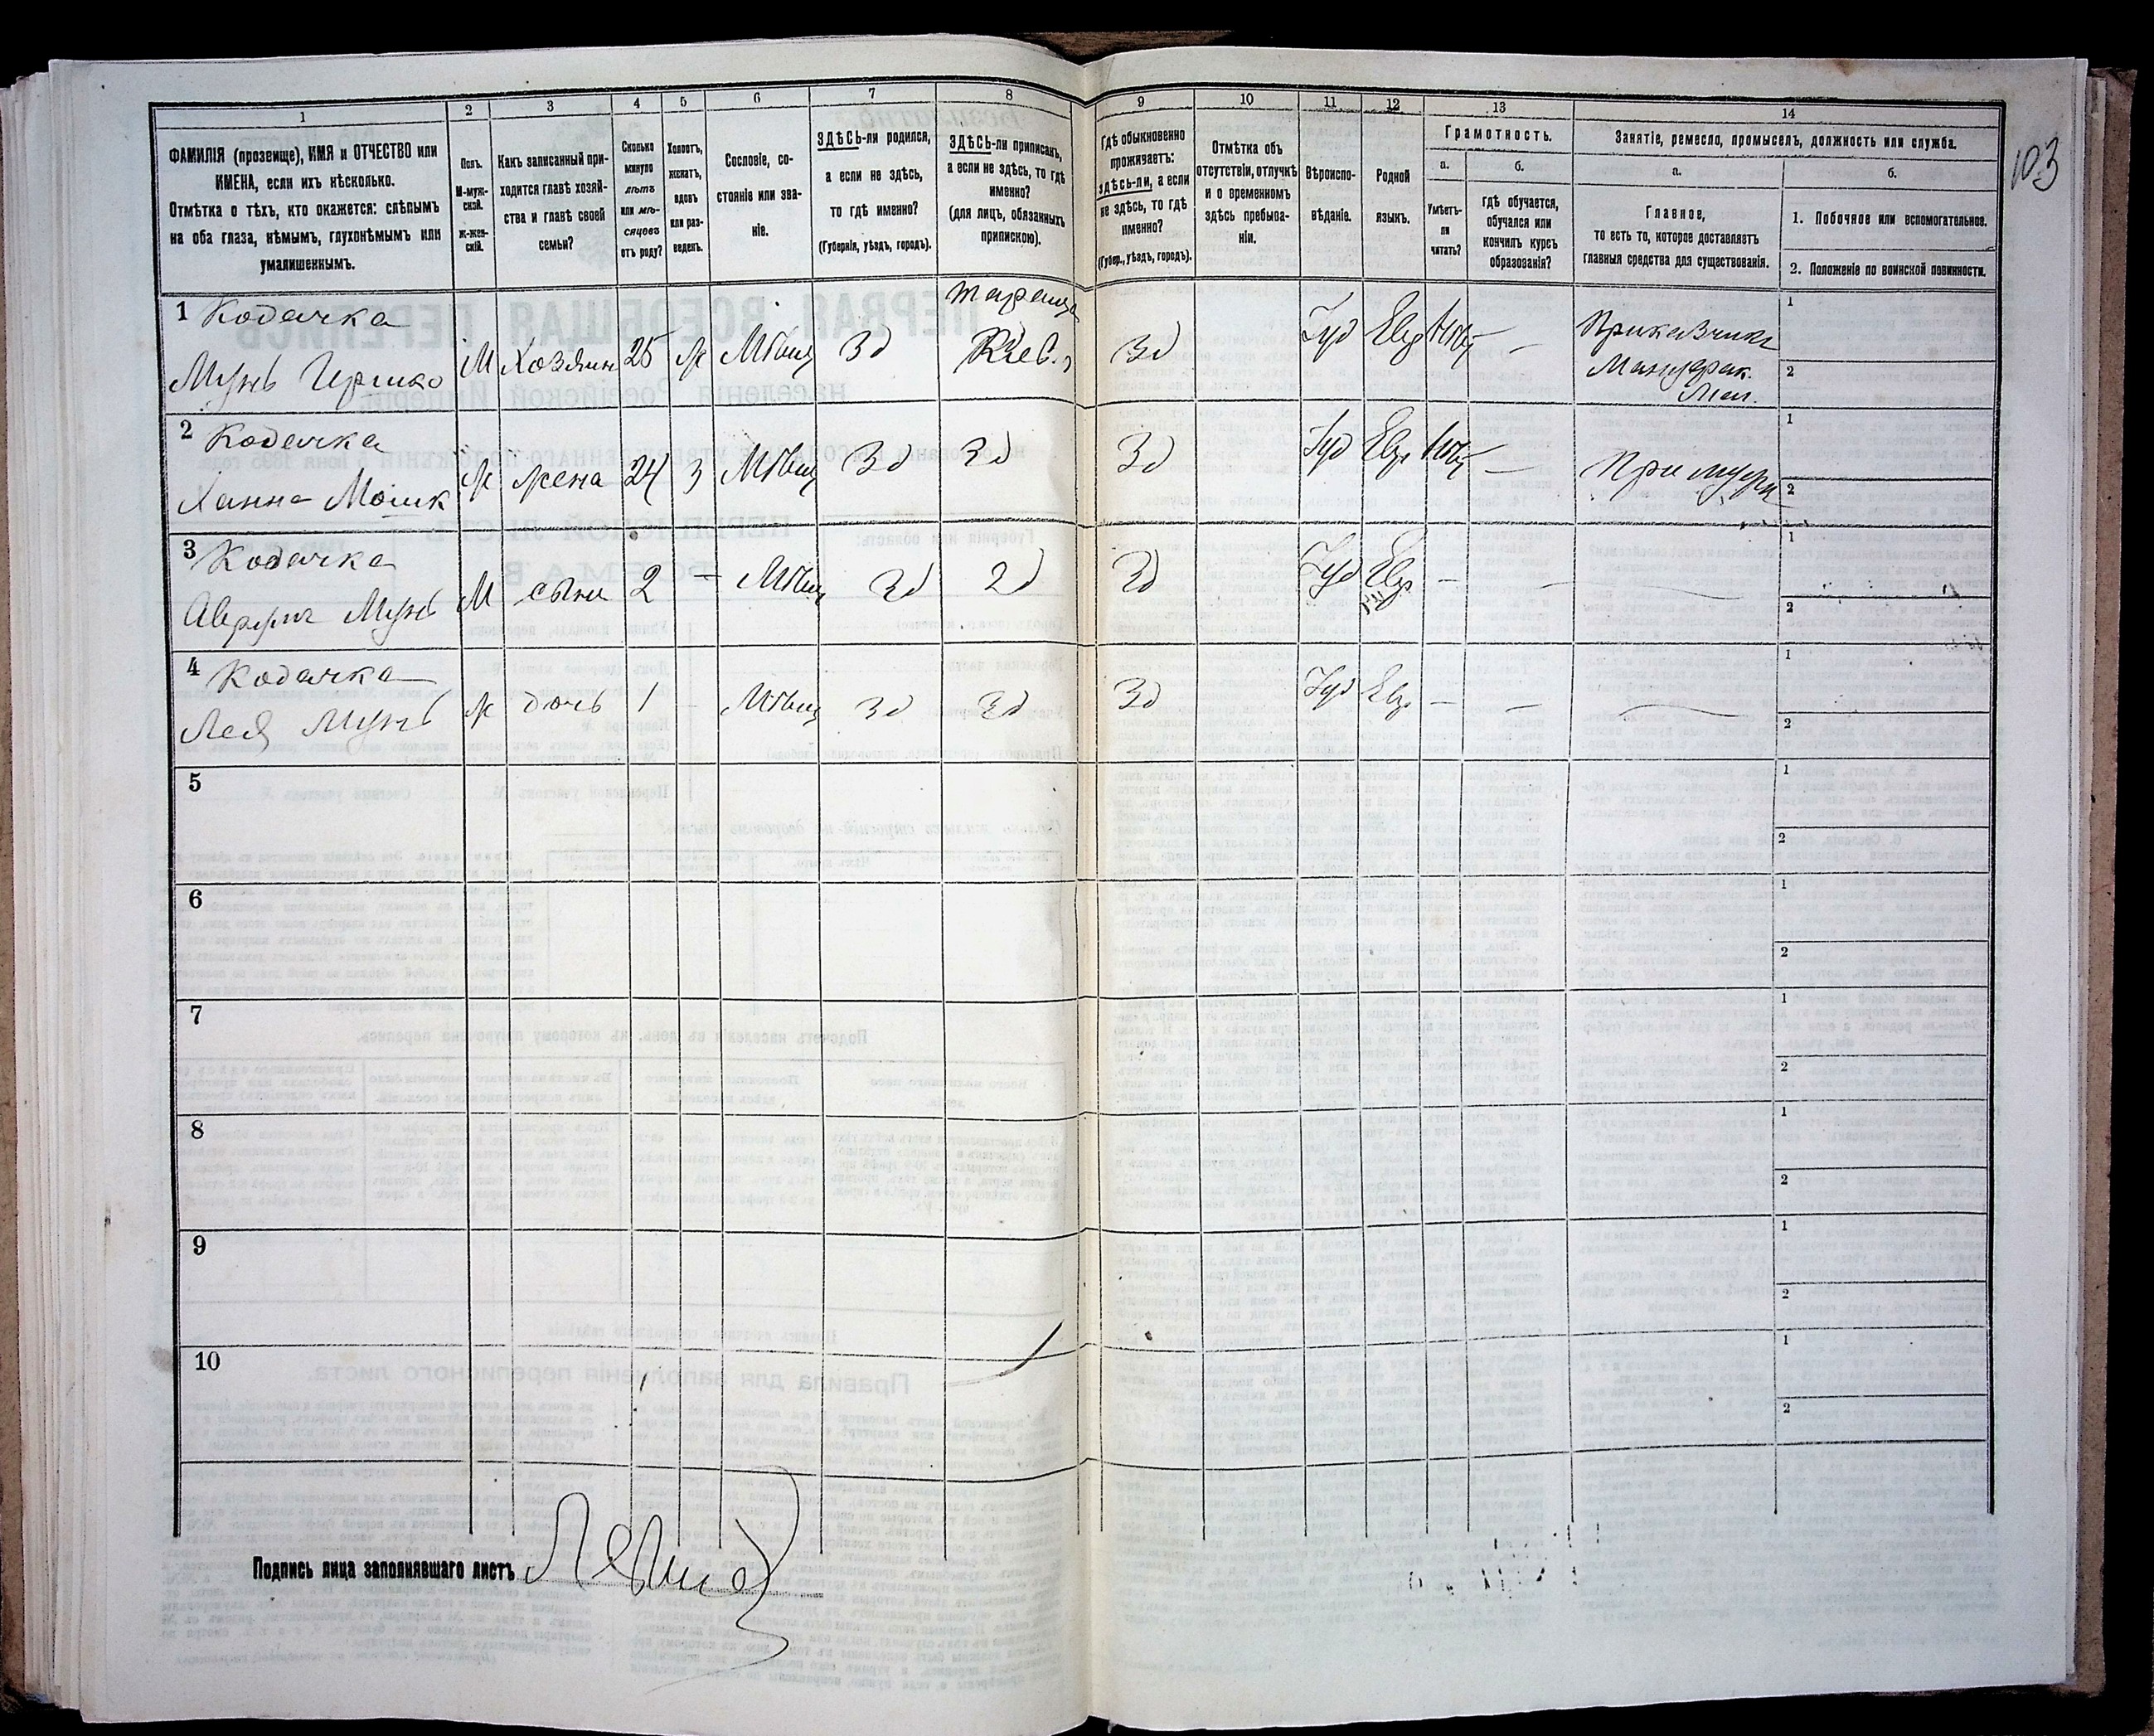 103
1
2
3
4
5
6
7
8
9
10
11
12
13
14
ФАМИЛІЯ (прозвище), ИМЯ и ОТЧЕСТВО или
ИМЕНА, если ихъ нѣсколько.
Отмѣтка о тѣхъ, кто окажется: слѣпымъ
на оба глаза, нѣмымъ, глухонѣмымъ или
умалишеннымъ.
Полъ.
М-муж-
ской.
ж-жен-
скій.
Какъ записанный при-
ходится главѣ хозяй-
ства и главѣ своей
семьи?
Сколько
минуло
лѣтъ
или мѣ-
сяцевъ
отъ роду?
Холостъ,
женатъ,
вдовъ
или раз-
веденъ.
Сословіе, со-
стояніе или зва-
ніе.
ЗДѢСЬ-ли родился,
а если не здѣсь,
то гдѣ именно?
(Губернія, уѣздъ, городъ).
ЗДѢСЬ-ли приписанъ,
а если не здѣсь, то гдѣ
именно?
(для лицъ, обязанныхъ
припискою).
Гдѣ обыкновенно
проживаетъ:
здѣсь-ли, а если
не здѣсь, то гдѣ
именно?
(Губер., уѣздъ, городъ).
Отмѣтка объ
отсутствіи, отлучкѣ
и о временномъ
здѣсь пребыва-
ніи.
Вѣроиспо-
вѣданіе.
Родной
языкъ.
Грамотность.
а.
б.
Умѣетъ-
ли
читать?
гдѣ обучается,
обучался или
кончилъ курсъ
образованія?
Занятіе, ремесло, промыселъ, должность или служба.
а.
б.
Главное,
то есть то, которое доставляетъ
главныя средства для существованія.
1. Побочное или вспомогательное.
2. Положеніе по воинской повинности.
1 Кодачка
М Хозяин 25 ж Мѣщ Зд Киев. Зд Іуд Евр Нѣт — Приказчик
Мануфак.
1
2
2 Кодачка
Ханна Мошк ж жена 24 З Мѣщ Зд Зд Зд Іуд Евр Нѣт — При муж
1
2
3 Кодачка
М сын 2 — Мѣщ Зд Зд Зд Іуд Евр — — —
1
2
4 Кодачка
Лея ж дочь 1 — Мѣщ Зд Зд Зд Іуд Евр — — —
1
2
5
1
2
6
1
2
7
1
2
8
1
2
9
1
2
10
1
2
Подпись лица заполнявшаго листъ